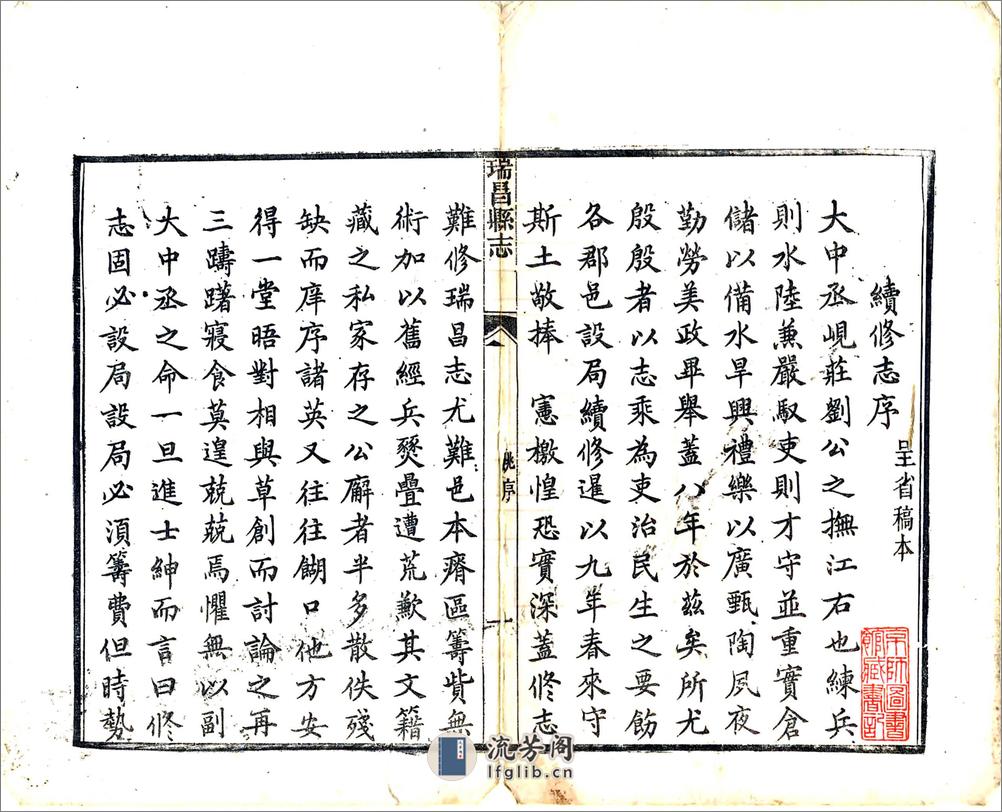 續修志序 呈省稿本
大中丞峴莊劉公之撫江右也練兵
則水陸兼嚴馭吏則才守並重實倉
儲以備水旱興禮樂以廣甄陶夙夜
勤勞美政畢舉蓋八年於兹矣所尤
殷殷者以志乘為吏治民生之要飭
各郡邑設局續修暹以九年春來守
斯土敬捧 憲檄惶恐實深蓋修志
瑞昌縣志
序
十
難修瑞昌志尤難邑本瘠區籌貲無
術加以舊經兵燹疊遭荒歉其文籍
藏之私家存之公廨者半多散佚殘
缺而庠序諸英又往往餬口他方安
得一堂晤對相與草創而討論之再
三躊躇寢食莫遑兢兢焉懼無以副
大中丞之命一旦進士紳而言曰修
志固必設局設局必須籌費但時勢
流芳阁
lfglib.cn